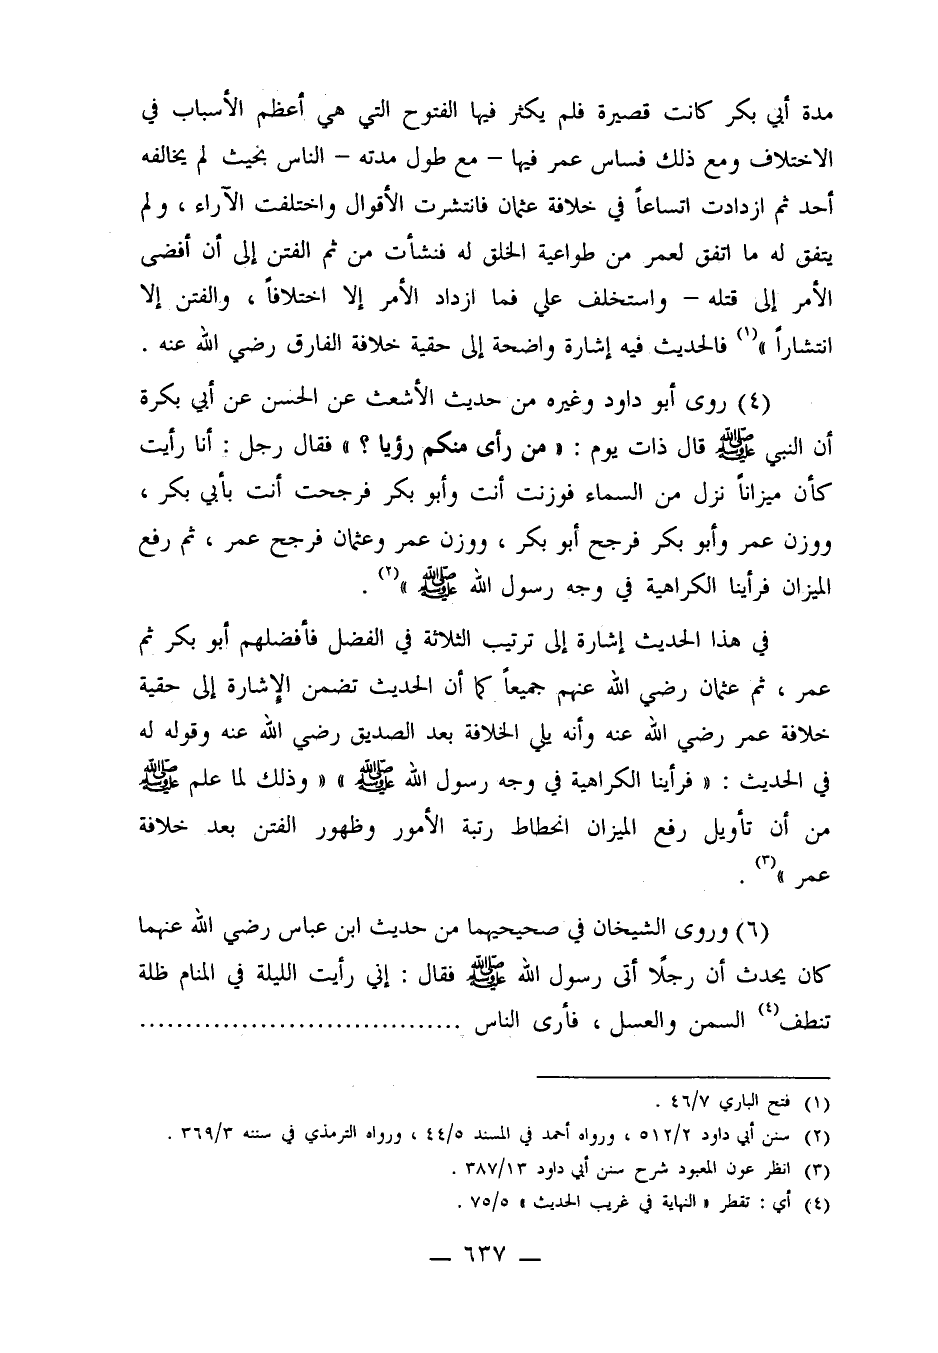 مدة أبي بكر كانت قصيرة فلم يكثر فيها الفتوح التي هي أعظم الأسباب في
الاختلاف ومع ذلك فساس عمر فيها – مع طول مدته – الناس بحيث لم يخالفه
أحد ثم ازدادت اتساعاً في خلافة عثمان فانتشرت الأقوال واختلفت الآراء ، ولم
يتفق له ما اتفق لعمر من طواعية الخلق له فنشأت من ثم الفتن إلى أن أفضى
الأمر إلى قتله – واستخلف علي فما ازداد الأمر إلا اختلافاً ، والفتن إلا
انتشاراً »(١) فالحديث فيه إشارة واضحة إلى حقية خلافة الفارق رضي الله عنه .
(٤) روى أبو داود وغيره من حديث الأشعث عن الحسن عن أبي بكرة
أن النبي ﷺ قال ذات يوم : « من رأى منكم رؤيا ؟ » فقال رجل : أنا رأيت
كأن ميزاناً نزل من السماء فوزنت أنت وأبو بكر فرجحت أنت بأبي بكر ،
ووزن عمر وأبو بكر فرجح أبو بكر ، ووزن عمر وعثمان فرجح عمر ، ثم رفع
الميزان فرأينا الكراهية في وجه رسول الله ﷺ »(٢) .
في هذا الحديث إشارة إلى ترتيب الثلاثة في الفضل فأفضلهم أبو بكر ثم
عمر ، ثم عثمان رضي الله عنهم جميعاً كما أن الحديث تضمن الإشارة إلى حقية
خلافة عمر رضي الله عنه وأنه يلي الخلافة بعد الصديق رضي الله عنه وقوله له
في الحديث : « فرأينا الكراهية في وجه رسول الله ﷺ » « وذلك لما علم ﷺ
من أن تأويل رفع الميزان انحطاط رتبة الأمور وظهور الفتن بعد خلافة
عمر »(٣) .
(٦) وروى الشيخان في صحيحيهما من حديث ابن عباس رضي الله عنهما
كان يحدث أن رجلًا أتى رسول الله ﷺ فقال : إني رأيت الليلة في المنام ظلة
تنطف(٤) السمن والعسل ، فأرى الناس ..................................
(١) فتح الباري ٤٦/٧ .
(٢) سنن أبي داود ٥١٢/٢ ، ورواه أحمد في المسند ٤٤/٥ ، ورواه الترمذي في سننه ٣٦٩/٣ .
(٣) انظر عون المعبود شرح سنن أبي داود ٣٨٧/١٣ .
(٤) أي : تقطر « النهاية في غريب الحديث » ٧٥/٥ .
— ٦٣٧ —